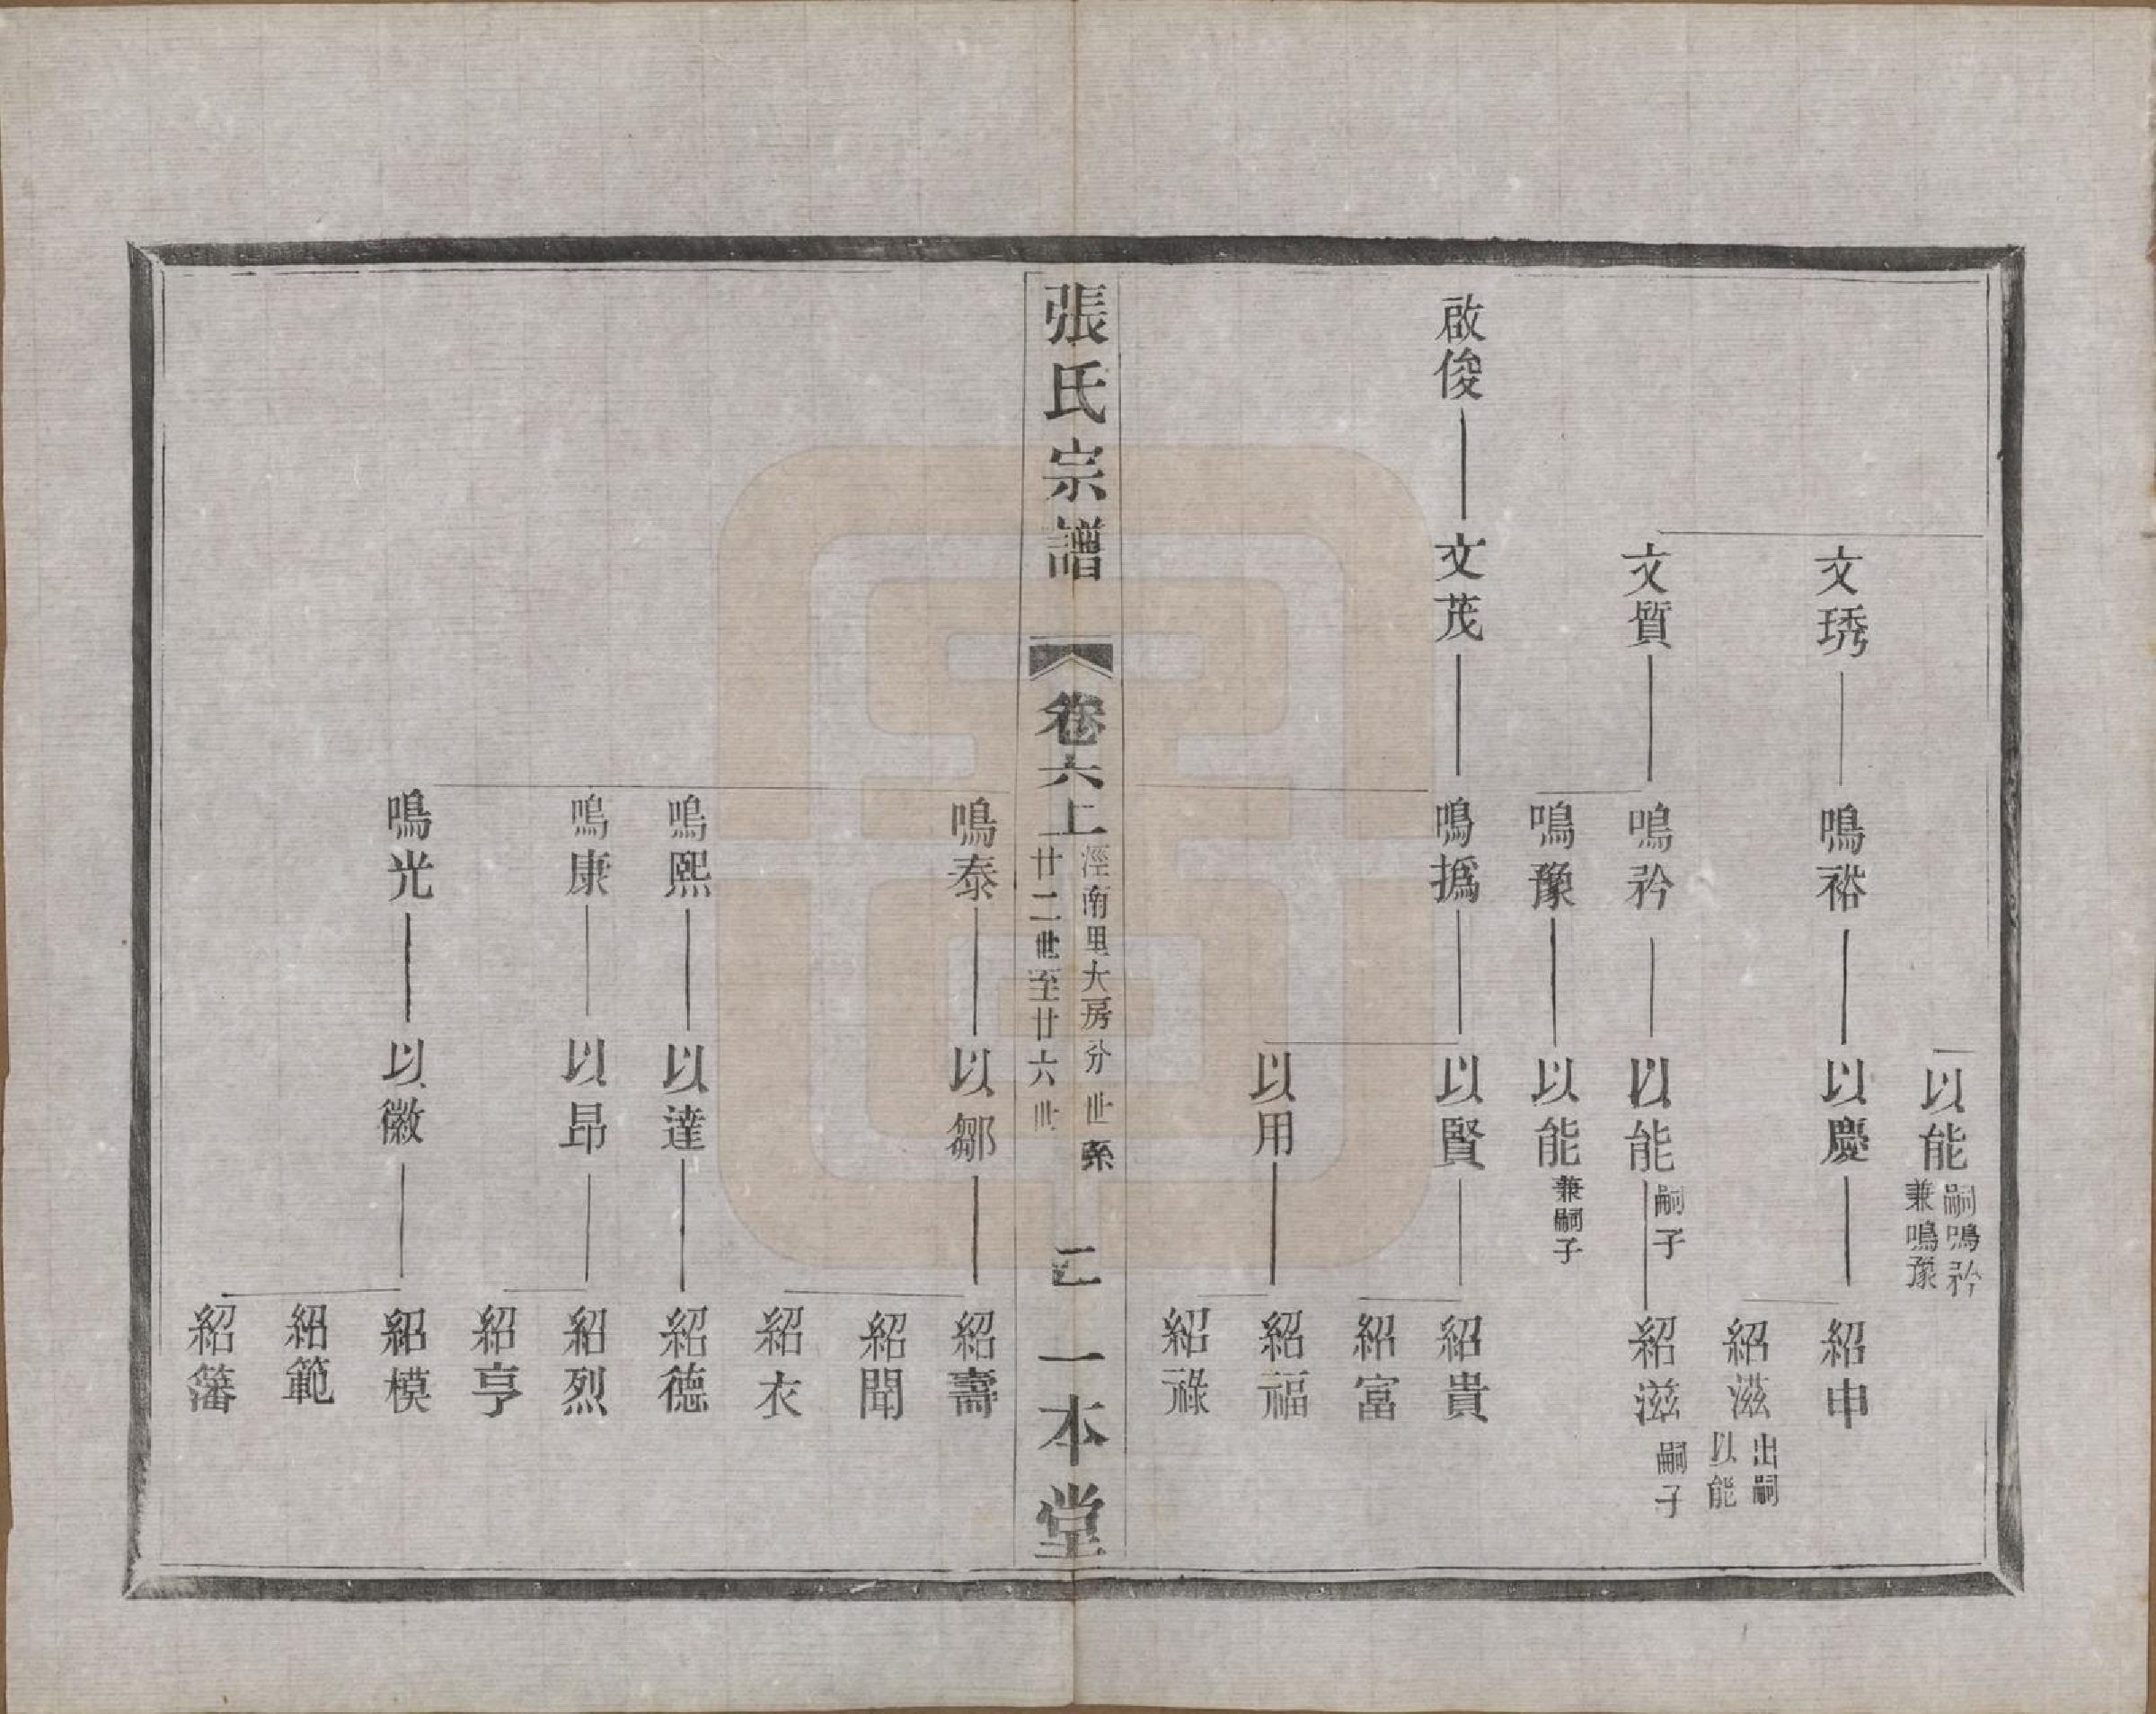 以能嗣鳴矜兼鳴豫
文琇 鳴裕 以慶 紹申
紹滋出嗣以能
文質 鳴矜 以能嗣子 紹滋嗣子
鳴豫 以能兼嗣子
啟俊 文茂 鳴撝 以賢 紹貴
紹富
以用 紹福
紹祿
張氏宗譜 卷六上 涇南里大房分世系 廿二世至廿六世 二 一本堂
鳴泰 以鄒 紹壽
紹聞
紹衣
鳴熙 以達 紹德
鳴康 以昂 紹烈
紹亨
鳴光 以徽 紹模
紹範
紹籓